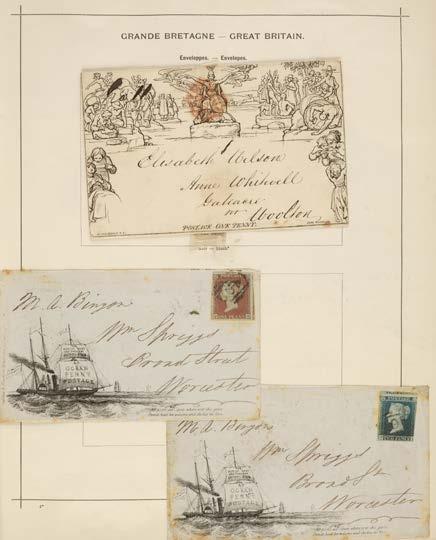 GRANDE BRETAGNE — GREAT BRITAIN.
Enveloppes. — Envelopes.
Elisabeth Wilson
Anne Whitwell
Gateacre
nr Woolton
POSTAGE ONE PENNY.
M. A. Bingon
Wm Spriggs
Broad Street
Worcester
OCEAN
PENNY
POSTAGE
ONE PENNY
M. A. Bingon
Wm Spriggs
Broad St
Worcester
OCEAN
PENNY
POSTAGE
TWO PENCE